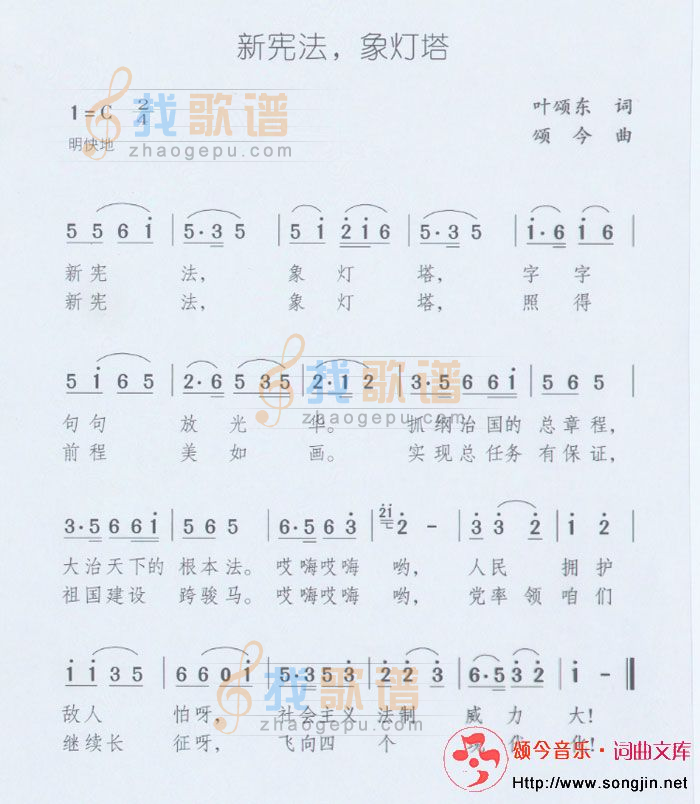 新宪法，象灯塔
1=C 2/4
叶颂东 词
明快地
颂 今 曲
找歌谱
zhaogepu.com
5 5 6 i | 5·3 5 | 5 i 2 i 6 | 5·3 5 | i·6 i 6 |
新宪 法， 象 灯 塔， 字 字
新宪 法， 象 灯 塔， 照 得
5 i 6 5 | 2·6 5 3 5 | 2·1 2 | 3·5 6 6 i | 5 6 5 |
句句 放 光 华。 抓纲治国的 总章程，
前程 美 如 画。 实现总任务 有保证，
找歌谱
zhaogepu.com
3·5 6 6 i | 5 6 5 | 6·5 6 3 | 2 i 2 - | 3 3 2 | i 2 |
大治天下的 根本法。 哎嗨哎嗨 哟， 人民 拥护
祖国建设 跨骏马。 哎嗨哎嗨 哟， 党率领 咱们
i i 3 5 | 6 6 0 i | 5·3 5 3 | 2 2 3 | 6·5 3 2 | i - ‖
敌人 怕呀， 社会主义 法制 威力 大！
继续长 征呀， 飞向四 个
找歌谱
zhaogepu.com
颂今音乐·词曲文库
Http://www.songjin.net